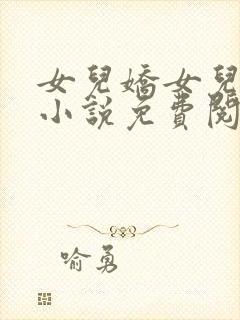 女兒嬌女兒
小說免費閱
喻勇